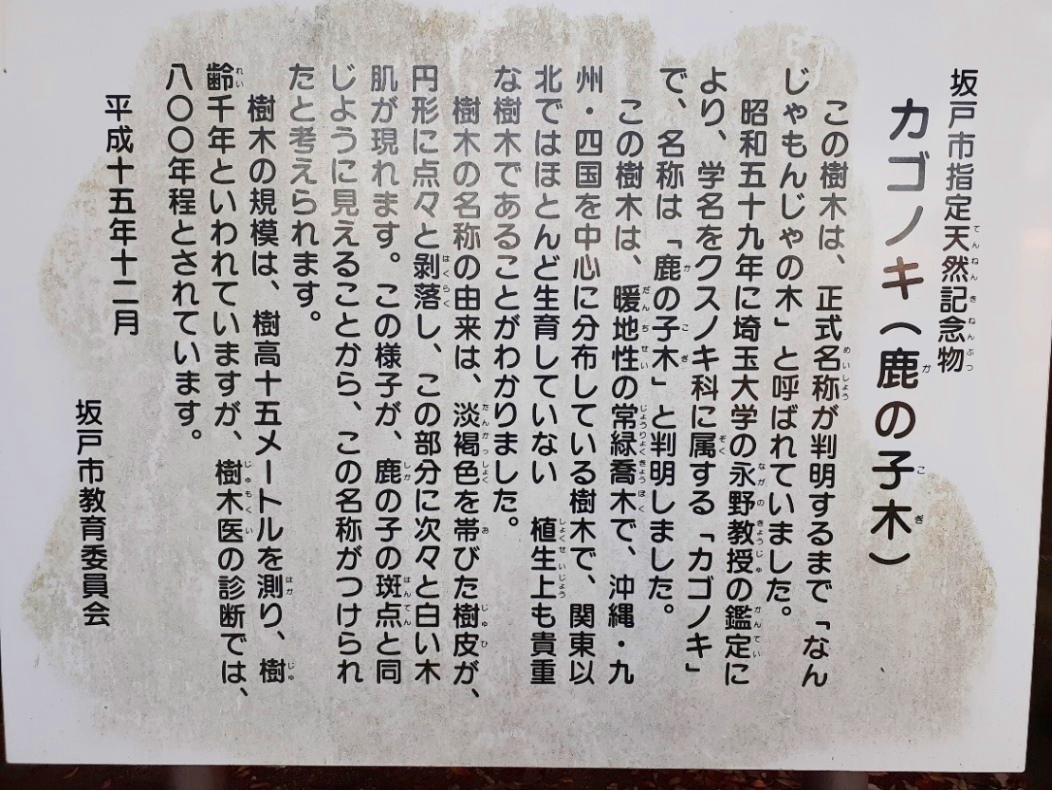 坂戸市指定天然記念物
カゴノキ(鹿の子木)
この樹木は、正式名称が判明するまで「なん
じゃもんじゃの木」と呼ばれていました。
昭和五十九年に埼玉大学の永野教授の鑑定に
より、学名をクスノキ科に属する「カゴノキ」
で、名称は「鹿の子木」と判明しました。
この樹木は、暖地性の常緑喬木で、沖縄・九
州・四国を中心に分布している樹木で、関東以
北ではほとんど生育していない 植生上も貴重
な樹木であることがわかりました。
樹木の名称の由来は、淡褐色を帯びた樹皮が、
円形に点々と剥落し、この部分に次々と白い木
肌が現れます。この様子が、鹿の子の斑点と同
じように見えることから、この名称がつけられ
たと考えられます。
樹木の規模は、樹高十五メートルを測り、樹
齢千年といわれていますが、樹木医の診断では、
八〇〇年程とされています。
平成十五年十二月
坂戸市教育委員会